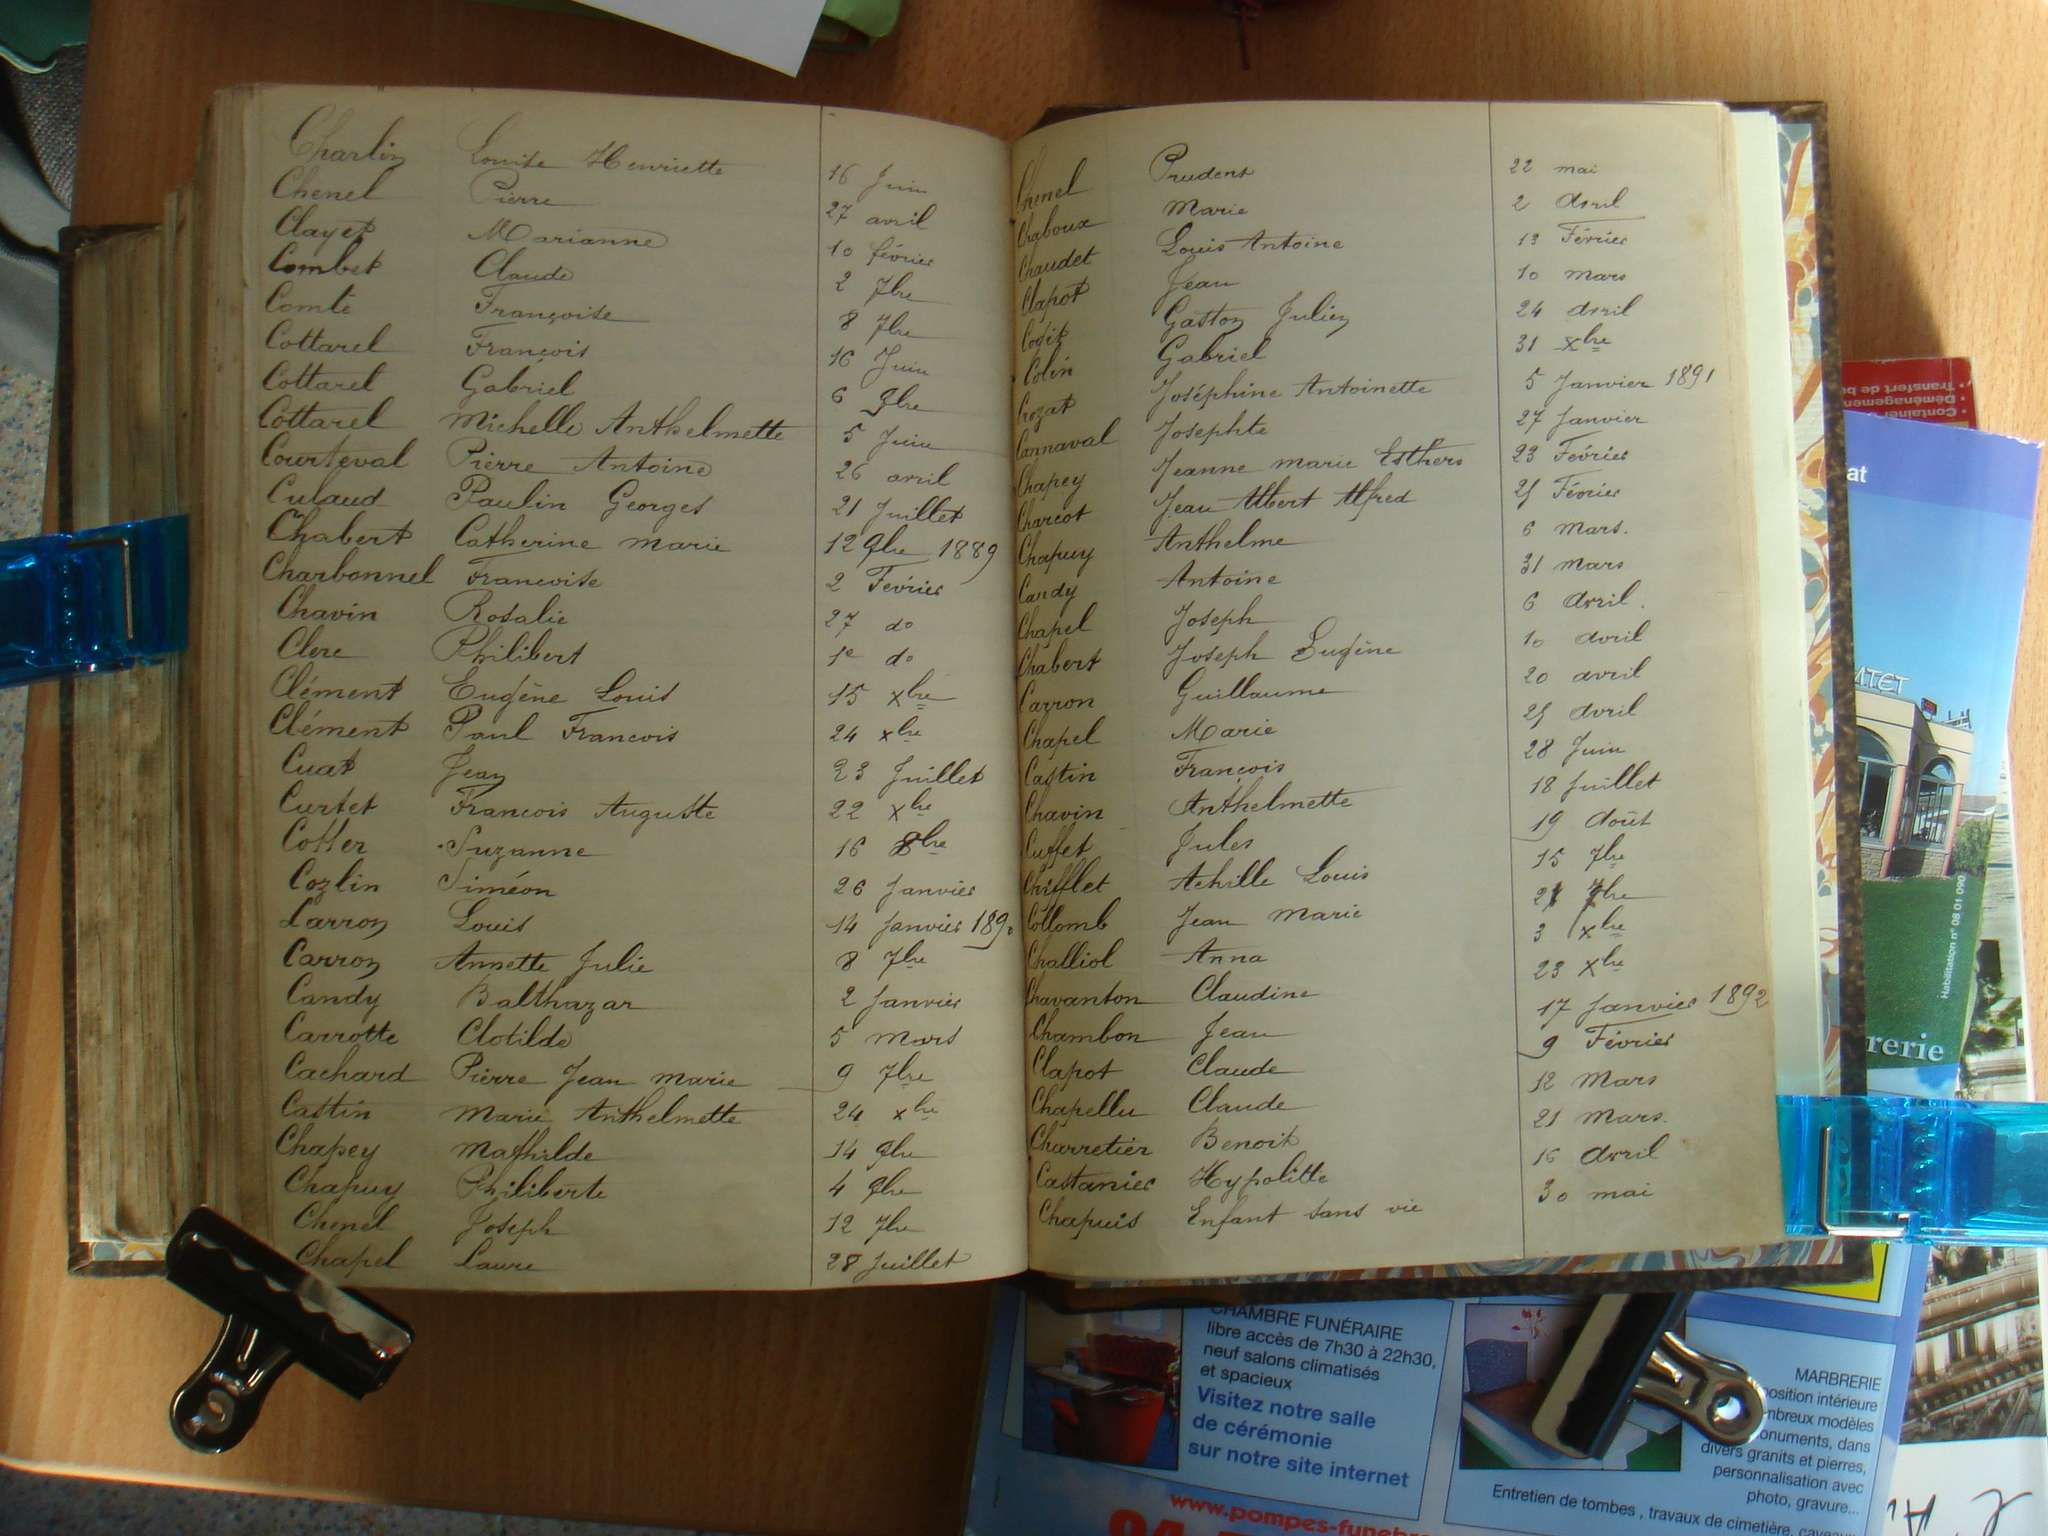 Charlin Louise Henriette 16 Juin
Chenel Pierre 27 avril
Clayet Marianne 10 février
Combet Claude 2 7bre
Comte Françoise 8 7bre
Cottarel François 16 Juin
Cottarel Gabriel 6 9bre
Cottarel Michelle Anthelmette 5 Juin
Courteval Pierre Antoine 26 avril
Culaud Paulin Georges 21 Juillet
Chabert Catherine Marie 12 9bre 1889
Charbonnel Francoise 2 Fevrier
Chavin Rosalie 27 do
Clere Philibert 1e do
Clément Eugène Louis 15 Xbre
Clément Paul Francois 24 Xbre
Cuat Jean 23 Juillet
Curtet Francois Auguste 22 Xbre
Cotter Suzanne 16 8bre
Cozlin Siméon 26 Janvier
Carron Louis 14 Janvier
Carron Annette Julie 8 7bre
Candy Balthazar 2 Janvier
Carrotte Clotilde 5 Mars
Cachard Pierre Jean Marie 9 7bre
Castin Marie Anthelmette 24 Xbre
Chapey Mathilde 14 9bre
Chapuy Philiberte 4 9bre
Chenel Joseph 12 7bre
Chapel Laure 28 Juillet
Chenel Prudent 22 mai
Chaboux Marie 2 Avril
Chaudet Louis Antoine 13 Février
Clapot Jean 10 mars
Gaston Julien 24 Avril
Colin Gabriel 31 Xbre
Crozat Joséphine Antoinette 5 Janvier 1891
Cannaval Josephte 27 Janvier
Chapey Jeanne Marie Esthers 23 Février
Charcot Jean Albert Alfred 25 Février
Chapuy Anthelme 6 Mars.
Candy Antoine 31 Mars
Chapel Joseph 6 Avril.
Chabert Joseph Eugène 10 Avril
Carron Guillaume 20 avril
Chapel Marie 25 Avril
Castin François 28 Juin
Chavin Anthelmette 18 Juillet
Cuffet Jules 19 Août
Chifflet Achille Louis 15 7bre
Collomb Jean Marie 7bre
Challiol Anna 3 Xbre
Chavanton Claudine 23 Xbre
Chambon Jean 17 Janvier 1892
Clapot Claude 9 Février
Chapellu Claude 12 Mars
Charretier Benoit 21 Mars.
Castanier Hypolitte 16 Avril
Chapuis Enfant sans vie 30 mai
• Container
• Déménagement
• Transfert de
at
Habilitation n° 08 01 090
rerie
CHAMBRE FUNÉRAIRE
libre accès de 7h30 à 22h30,
neuf salons climatisés
et spacieux
Visitez notre salle
de cérémonie
sur notre site internet
www.pompes-funebre
MARBRERIE
position intérieure
nbreux modèles
onuments, dans
divers granits et pierres,
personnalisation avec
photo, gravure...
Entretien de tombes, travaux de cimetière, caveaux